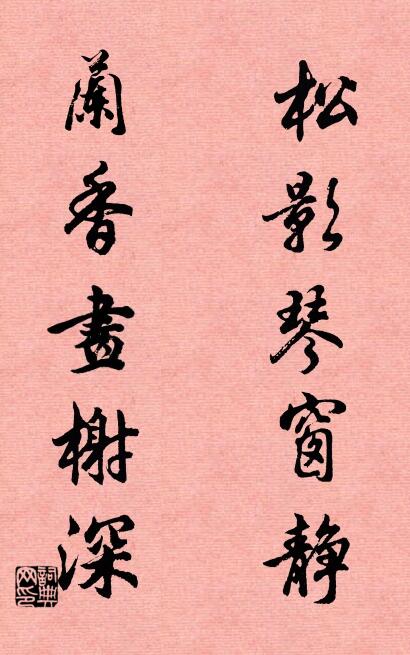 松影琴窗静
蘭香畫榭深
詞典网印